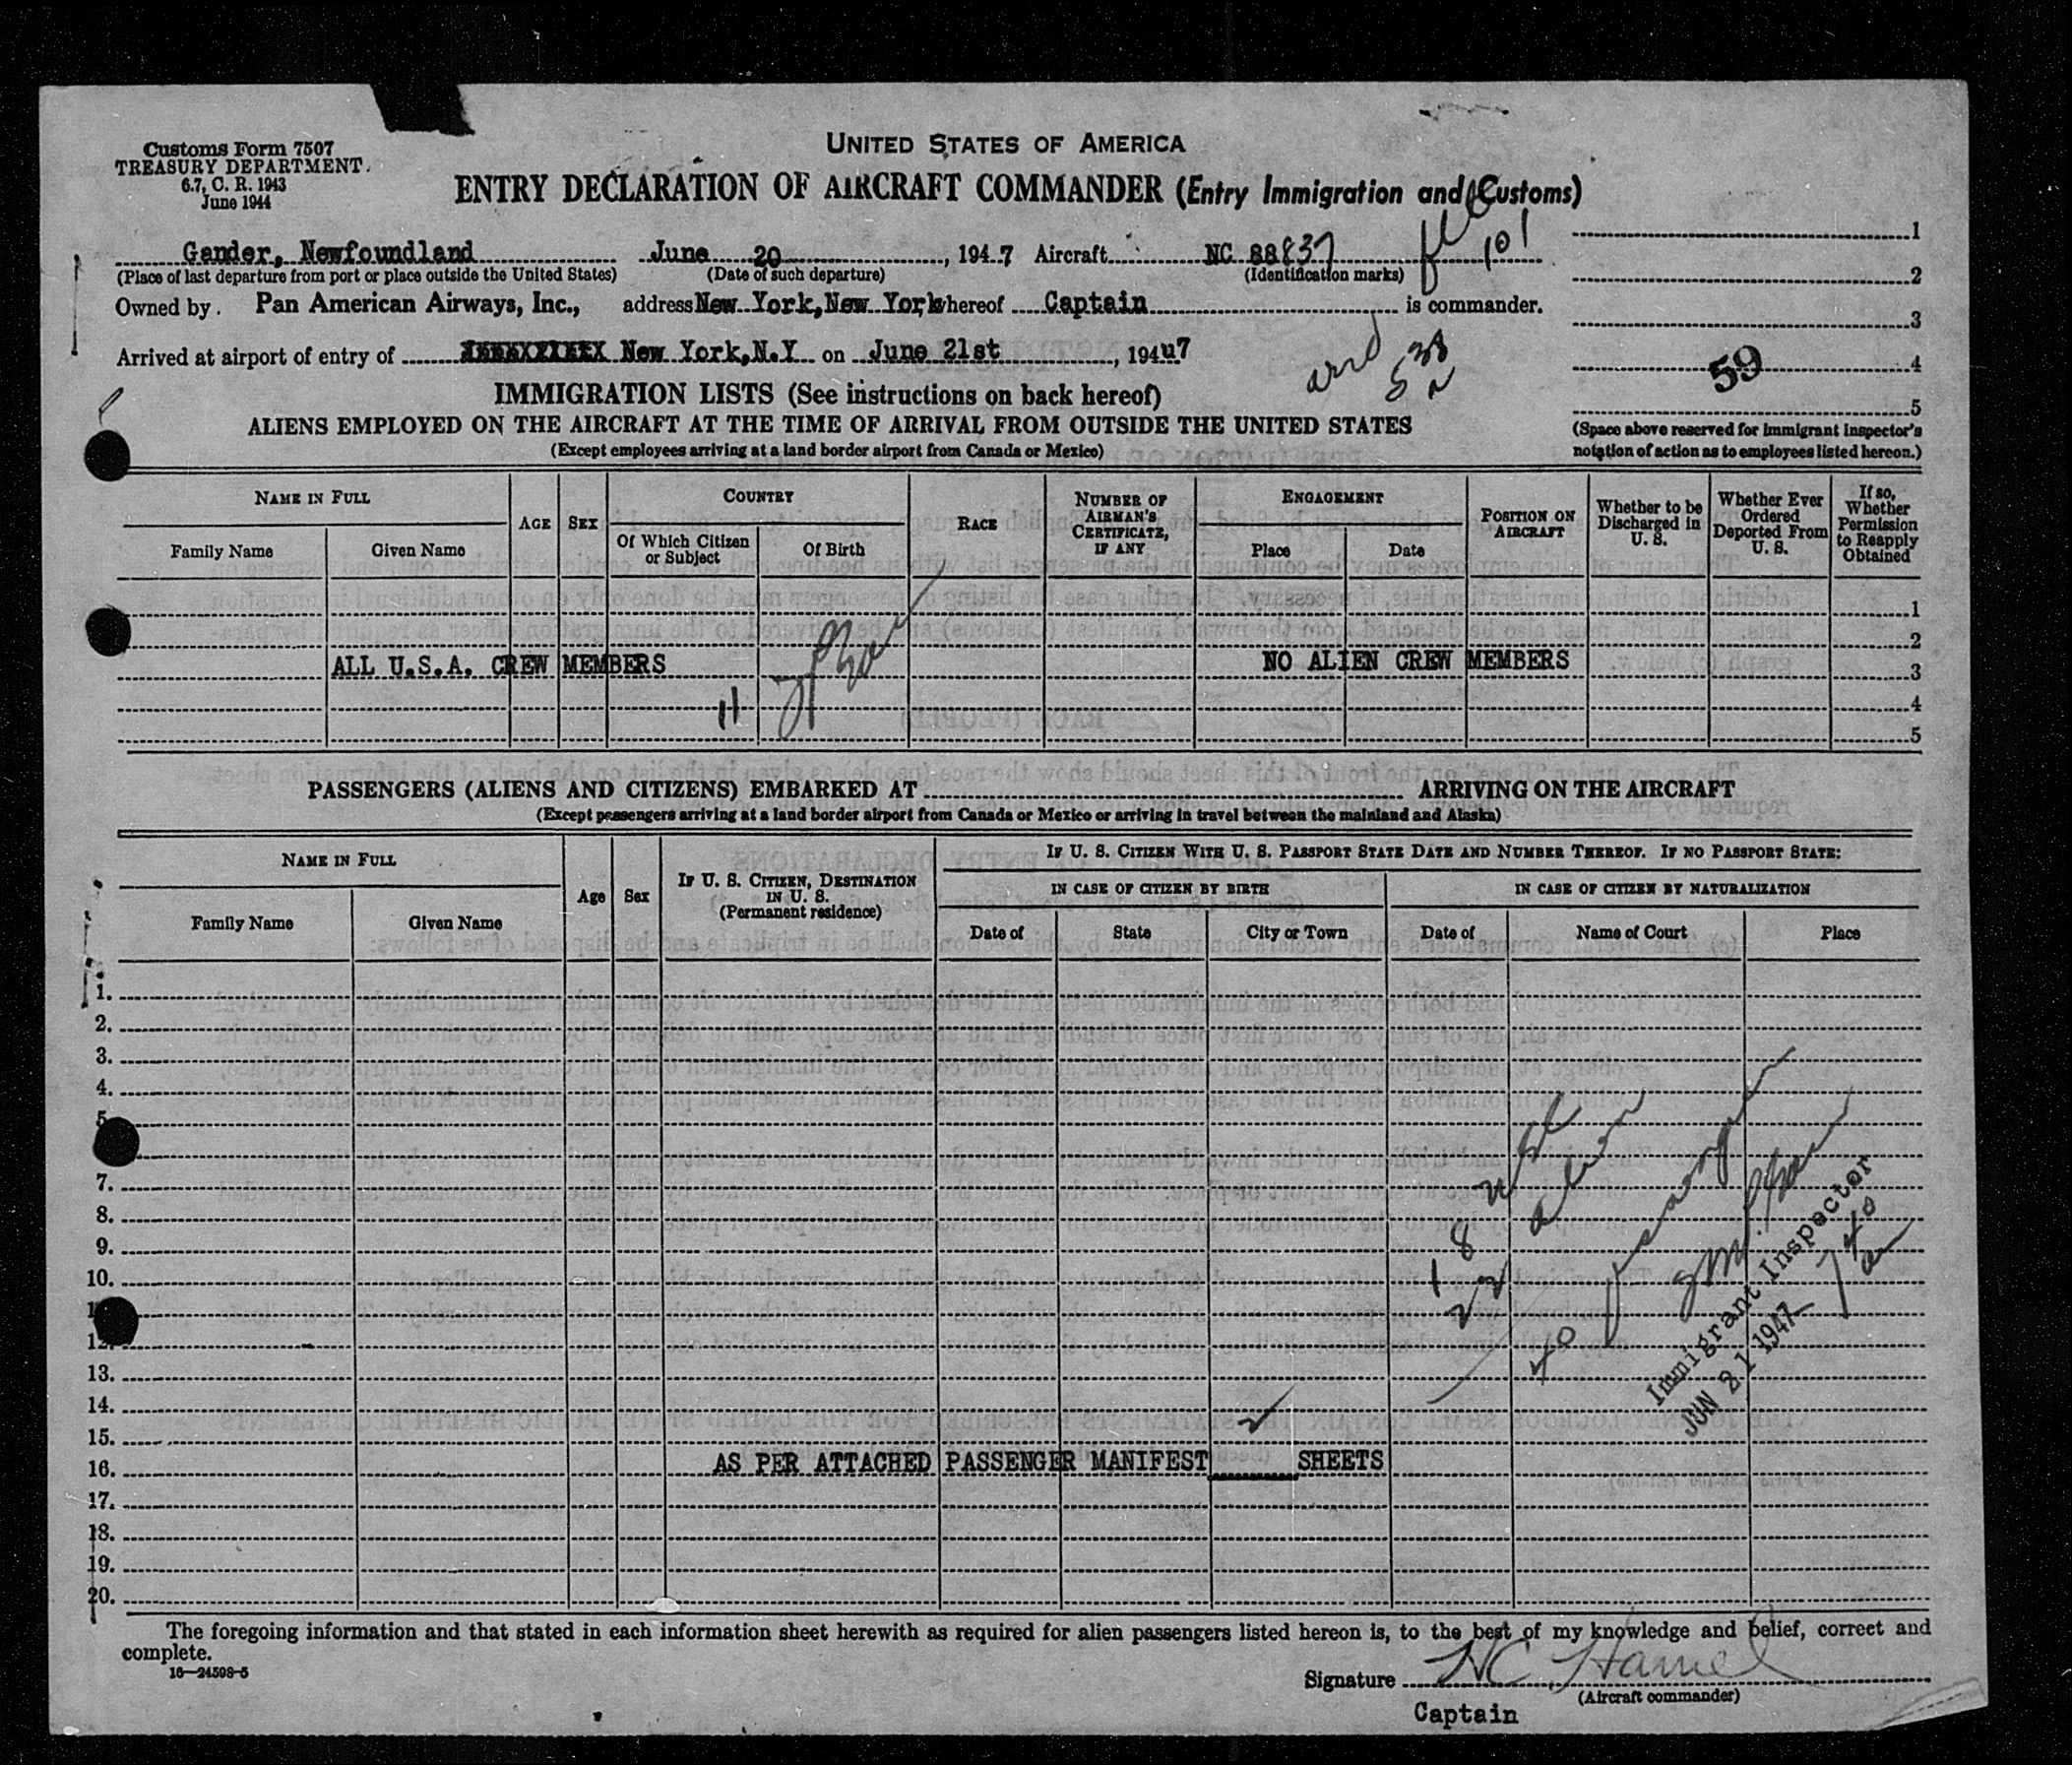 Customs Form 7507
TREASURY DEPARTMENT.
6.7, C. R. 1943
June 1944
UNITED STATES OF AMERICA
ENTRY DECLARATION OF AIRCRAFT COMMANDER (Entry Immigration and Customs)
Gander, Newfoundland June 20, 1947 Aircraft NC 88837 101
(Place of last departure from port or place outside the United States) (Date of such departure) (Identification marks)
Owned by. Pan American Airways, Inc., address New York, New York whereof Captain is commander.
Arrived at airport of entry of New York, N.Y on June 21st, 1947
arrd 538
1
2
3
59 4
5
(Space above reserved for immigrant inspector's
notation of action as to employees listed hereon.)
IMMIGRATION LISTS (See instructions on back hereof)
ALIENS EMPLOYED ON THE AIRCRAFT AT THE TIME OF ARRIVAL FROM OUTSIDE THE UNITED STATES
(Except employees arriving at a land border airport from Canada or Mexico)
NAME IN FULL
Family Name Given Name
AGE SEX
COUNTRY
Of Which Citizen or Subject Of Birth
RACE
NUMBER OF AIRMAN'S CERTIFICATE, IF ANY
ENGAGEMENT
Place Date
POSITION ON AIRCRAFT
Whether to be Discharged in U. S.
Whether Ever Ordered Deported From U. S.
If so, Whether Permission to Reapply Obtained
1
2
ALL U.S.A. CREW MEMBERS NO ALIEN CREW MEMBERS 3
11 4
5
PASSENGERS (ALIENS AND CITIZENS) EMBARKED AT ARRIVING ON THE AIRCRAFT
(Except passengers arriving at a land border airport from Canada or Mexico or arriving in travel between the mainland and Alaska)
NAME IN FULL
Family Name Given Name
Age Sex
IF U. S. CITIZEN, DESTINATION IN U. S.
(Permanent residence)
IF U. S. CITIZEN WITH U. S. PASSPORT STATE DATE AND NUMBER THEREOF. IF NO PASSPORT STATE:
IN CASE OF CITIZEN BY BIRTH IN CASE OF CITIZEN BY NATURALIZATION
Date of State City or Town Date of Name of Court Place
1.
2.
3.
4.
5
7.
8.
9.
10.
12.
13.
14.
15.
16. AS PER ATTACHED PASSENGER MANIFEST 2 SHEETS
17.
18.
19.
20.
18 usc
22 alien
40 passengers
Immigrant Inspector
JUN 21 1947
740
am
The foregoing information and that stated in each information sheet herewith as required for alien passengers listed hereon is, to the best of my knowledge and belief, correct and
complete.
16—24598-5
Signature HC Hamel
(Aircraft commander)
Captain